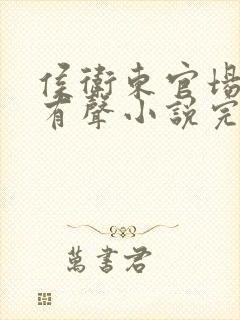 侯衛東官場
有聲小說完
萬書君